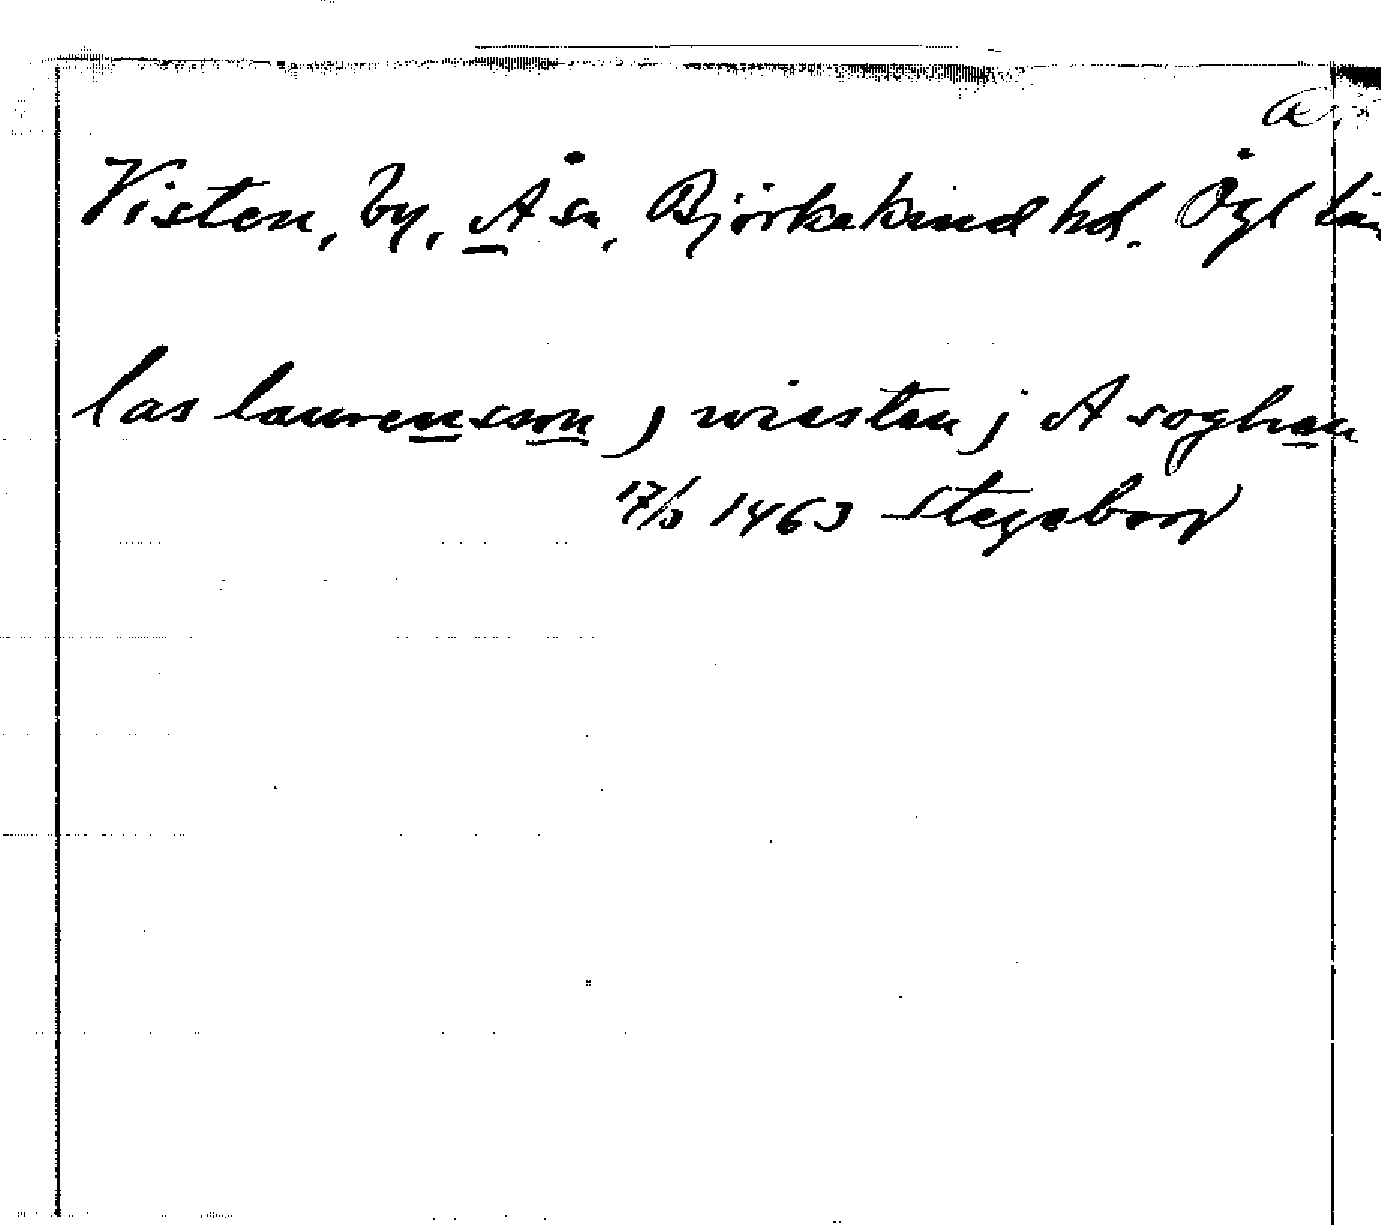 Visten, by, Å sn, Björkekind hd. Ögl län
las laurensson j wiesten j A soghen
17/3 1463 Stegeborg